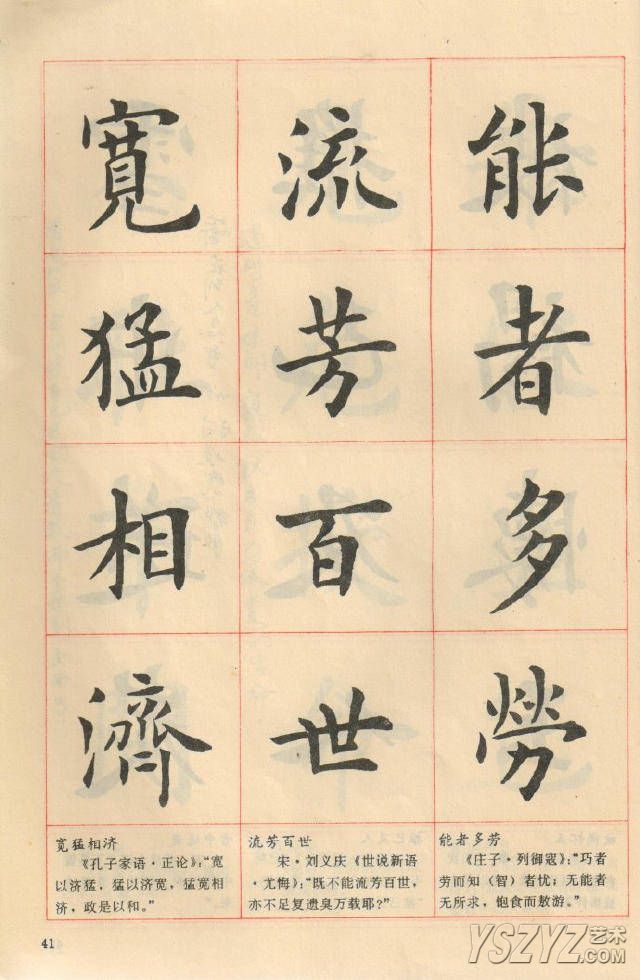 能者多勞
流芳百世
寬猛相濟
能者多劳
《庄子·列御寇》：“巧者
劳而知（智）者忧；无能者
无所求，饱食而敖游。”
流芳百世
宋·刘义庆《世说新语
·尤悔》：“既不能流芳百世，
亦不足复遗臭万载耶？”
宽猛相济
《孔子家语·正论》：“宽
以济猛，猛以济宽，宽猛相
济，政是以和。”
41
YSZYZ艺术
.COM